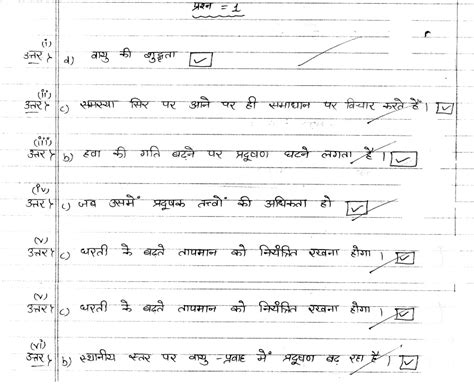 प्रश्न = 1
(i) उत्तर } a) वायु की शुद्धता
(ii) उत्तर } c) समस्या सिर पर आने पर ही समाधान पर विचार करते हैं।
(iii) उत्तर } b) हवा की गति बढ़ने पर प्रदूषण घटने लगता है।
(iv) उत्तर } c) जब उसमें प्रदूषक तत्त्वों की अधिकता हो
(v) उत्तर } c) धरती के बढते तापमान को नियंत्रित रखना होगा।
(v) उत्तर } c) धरती के बढते तापमान को नियंत्रित रखना होगा।
(vi) उत्तर } b) स्थानीय स्तर पर वायु - प्रवाह में प्रदूषण बढ़ रहा है।